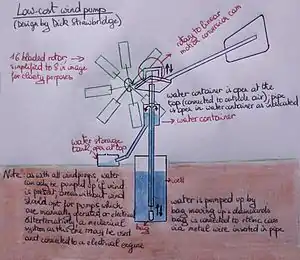 Low-cost wind pump
(design by Dick Strawbridge)
rotary to linear
motion conversion cam
16 bladed rotor,
simplified to 8 in image
for clarity purposes
water container is open at the
top (connected to outside air) pipe
is open in water container as indicated
water container
water storage
tank, open at top
Note: as with all windpumps, water
can only be pumped up if wind
is present, areas without wind
should opt for pumps which
are manually operated or electrical.
Alternatively a mechanical
system as this one may be used
and connected to a electrical engine
well
bag
water is pumped up by
bag moving up & downwards
bag is connected to
via metal wire, inserted in pipe